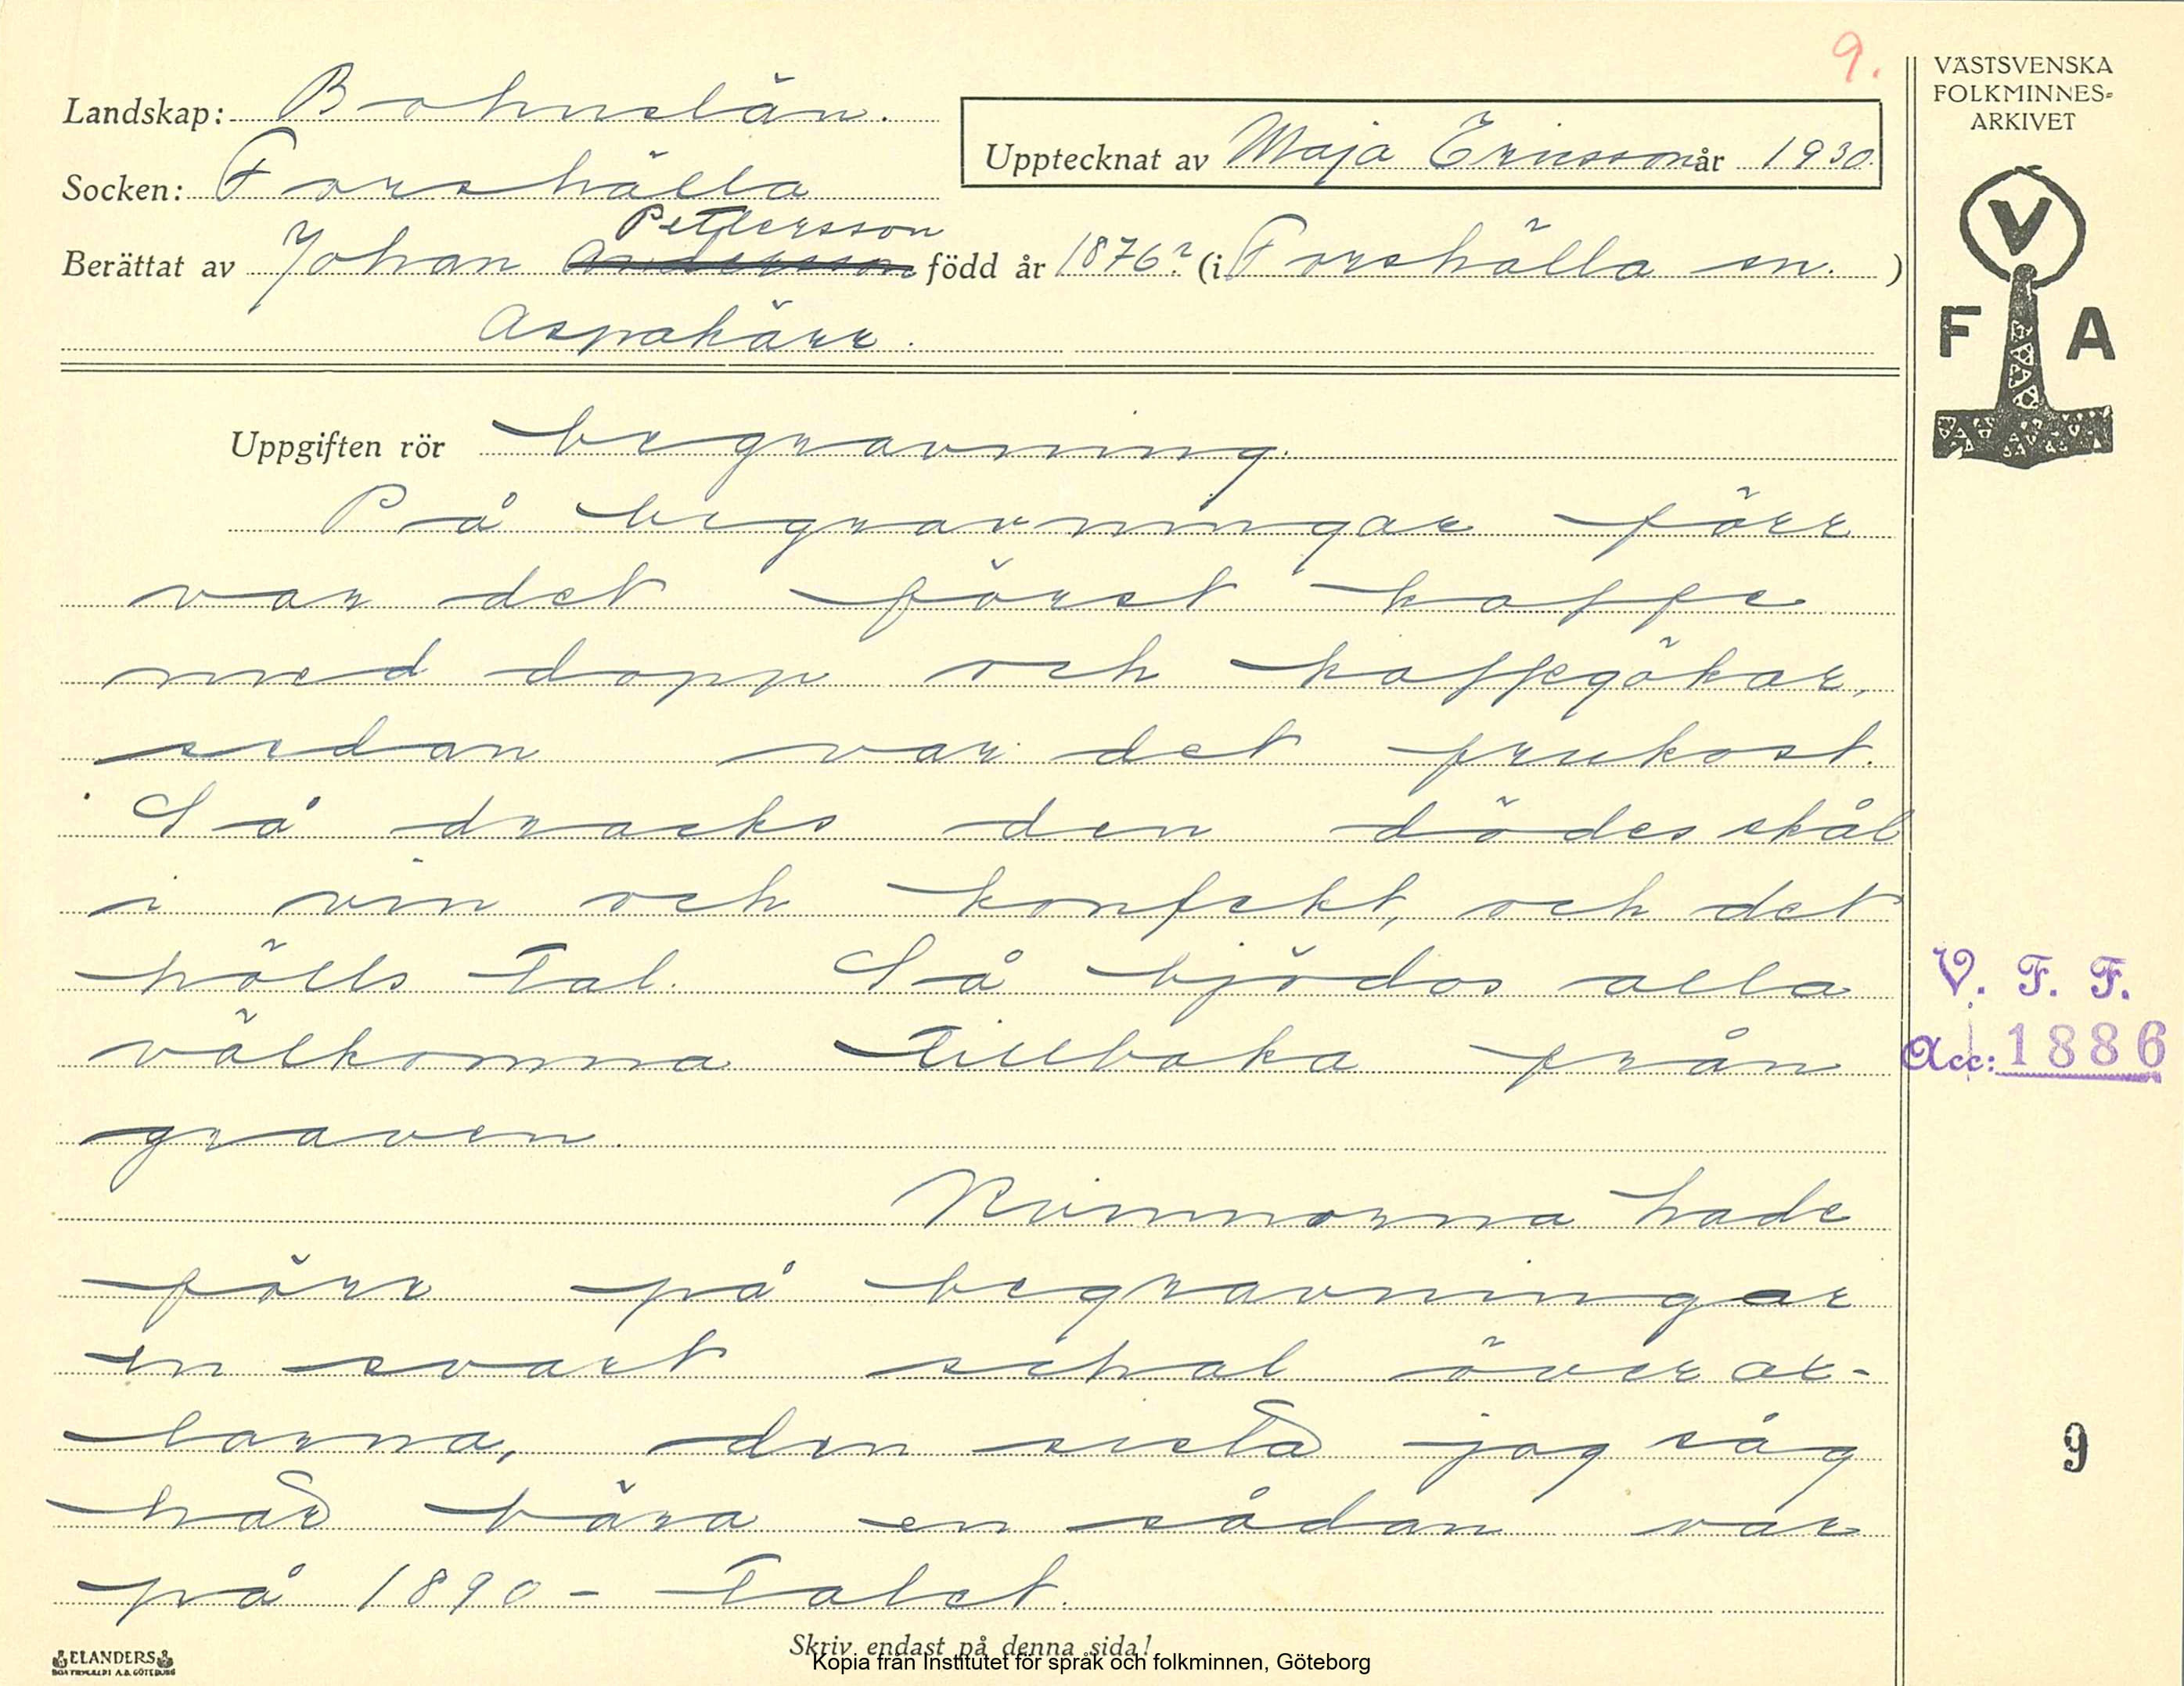 9.
VÄSTSVENSKA
FOLKMINNES-
ARKIVET
Landskap: Bohuslän.
Upptecknat av Maja Ericsson år 1930.
Socken: Forshälla
Pettersson
Berättat av Johan Andersson född år 1876? (i Forshälla sn. )
Aspakärr.
V
F A
Uppgiften rör begravning.
På begravningar förr
var det först kaffe
med dopp och kaffegökar,
sedan var det frukost.
Så dracks den dödes skål
i vin och konfekt, och det
hölls tal. Så bjödos alla
välkomna tillbaka från
graven.
V. F. F.
Acc: 1886
Kvinnorna hade
förr på begravningar
en svart schal över ax-
larna, den sista jag såg
här bära en sådan var
på 1890-talet.
9
Skriv endast på denna sida!
ELANDERS
BOKTRYCKERI A.B. GÖTEBORG
Kopia från Institutet för språk och folkminnen, Göteborg